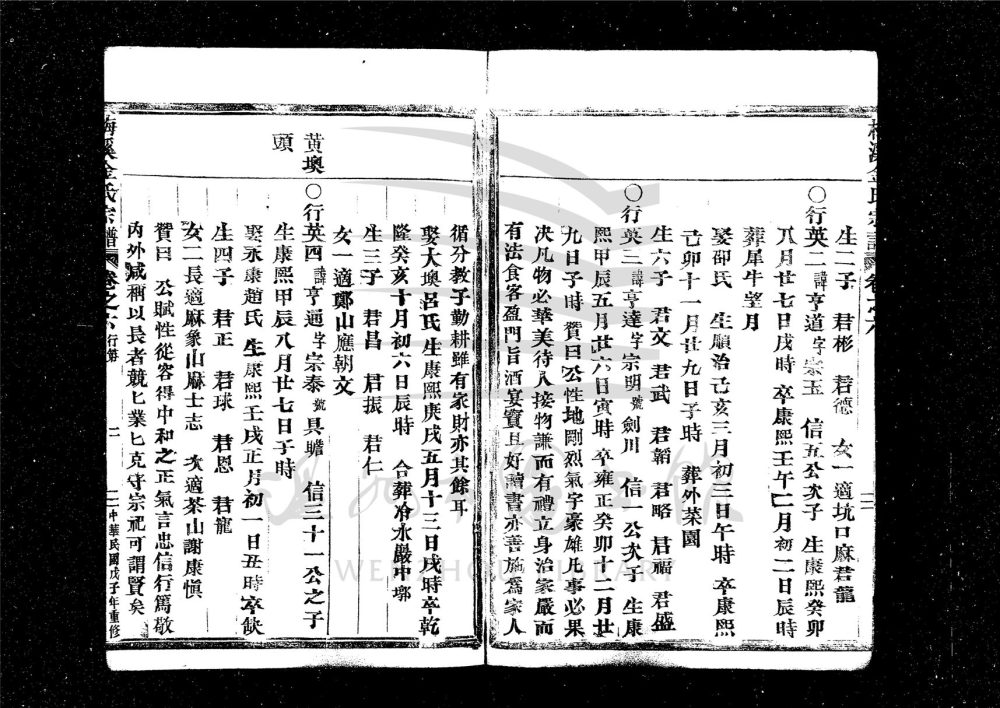 梅溪金氏宗譜 卷之六
生二子 君彬 君德 女一適坑口麻君龍
○行英二諱亨道字宗玉 信五公次子 生康熙癸卯
八月廿七日戌時 卒康熙壬午二月初二日辰時
葬犀牛望月
娶邵氏 生順治己亥三月初三日午時 卒康熙
己卯十一月廿九日子時 葬外菜園
生六子 君文 君武 君韜 君略 君福 君盛
○行英三諱亨達字宗明號劍川 信一公次子 生康
熙甲辰五月廿六日寅時 卒雍正癸卯十二月廿
九日子時 贊曰公性地剛烈氣字豪雄凡事必果
决凡物必華美待人接物謙而有禮立身治家嚴而
有法食客盈門旨酒宴賓且好讀書亦善施爲家人
循分教子勤耕雖有家財亦其餘耳
娶大墺呂氏生康熙庚戌五月十三日戌時卒乾
隆癸亥十月初六日辰時 合葬冷水嚴中墎
生三子 君昌 君振 君仁
女一適鄭山應朝文
黃墺
頭
○行英四諱亨通字宗泰號具瞻 信三十一公之子
生康熙甲辰八月廿七日子時
娶永康趙氏 生康熙壬戌正月初一日丑時卒缺
生四子 君正 君球 君恩 君龍
女二長適麻象山麻士志 次適茶山謝康愼
贊曰 公賦性從容得中和之正氣言忠信行篤敬
內外咸稱以長者競匕業匕克守宗祀可謂賢矣
梅溪金氏宗譜 卷之六 行第 二 中華民國戊子年重修
WENZHOU LIBRARY